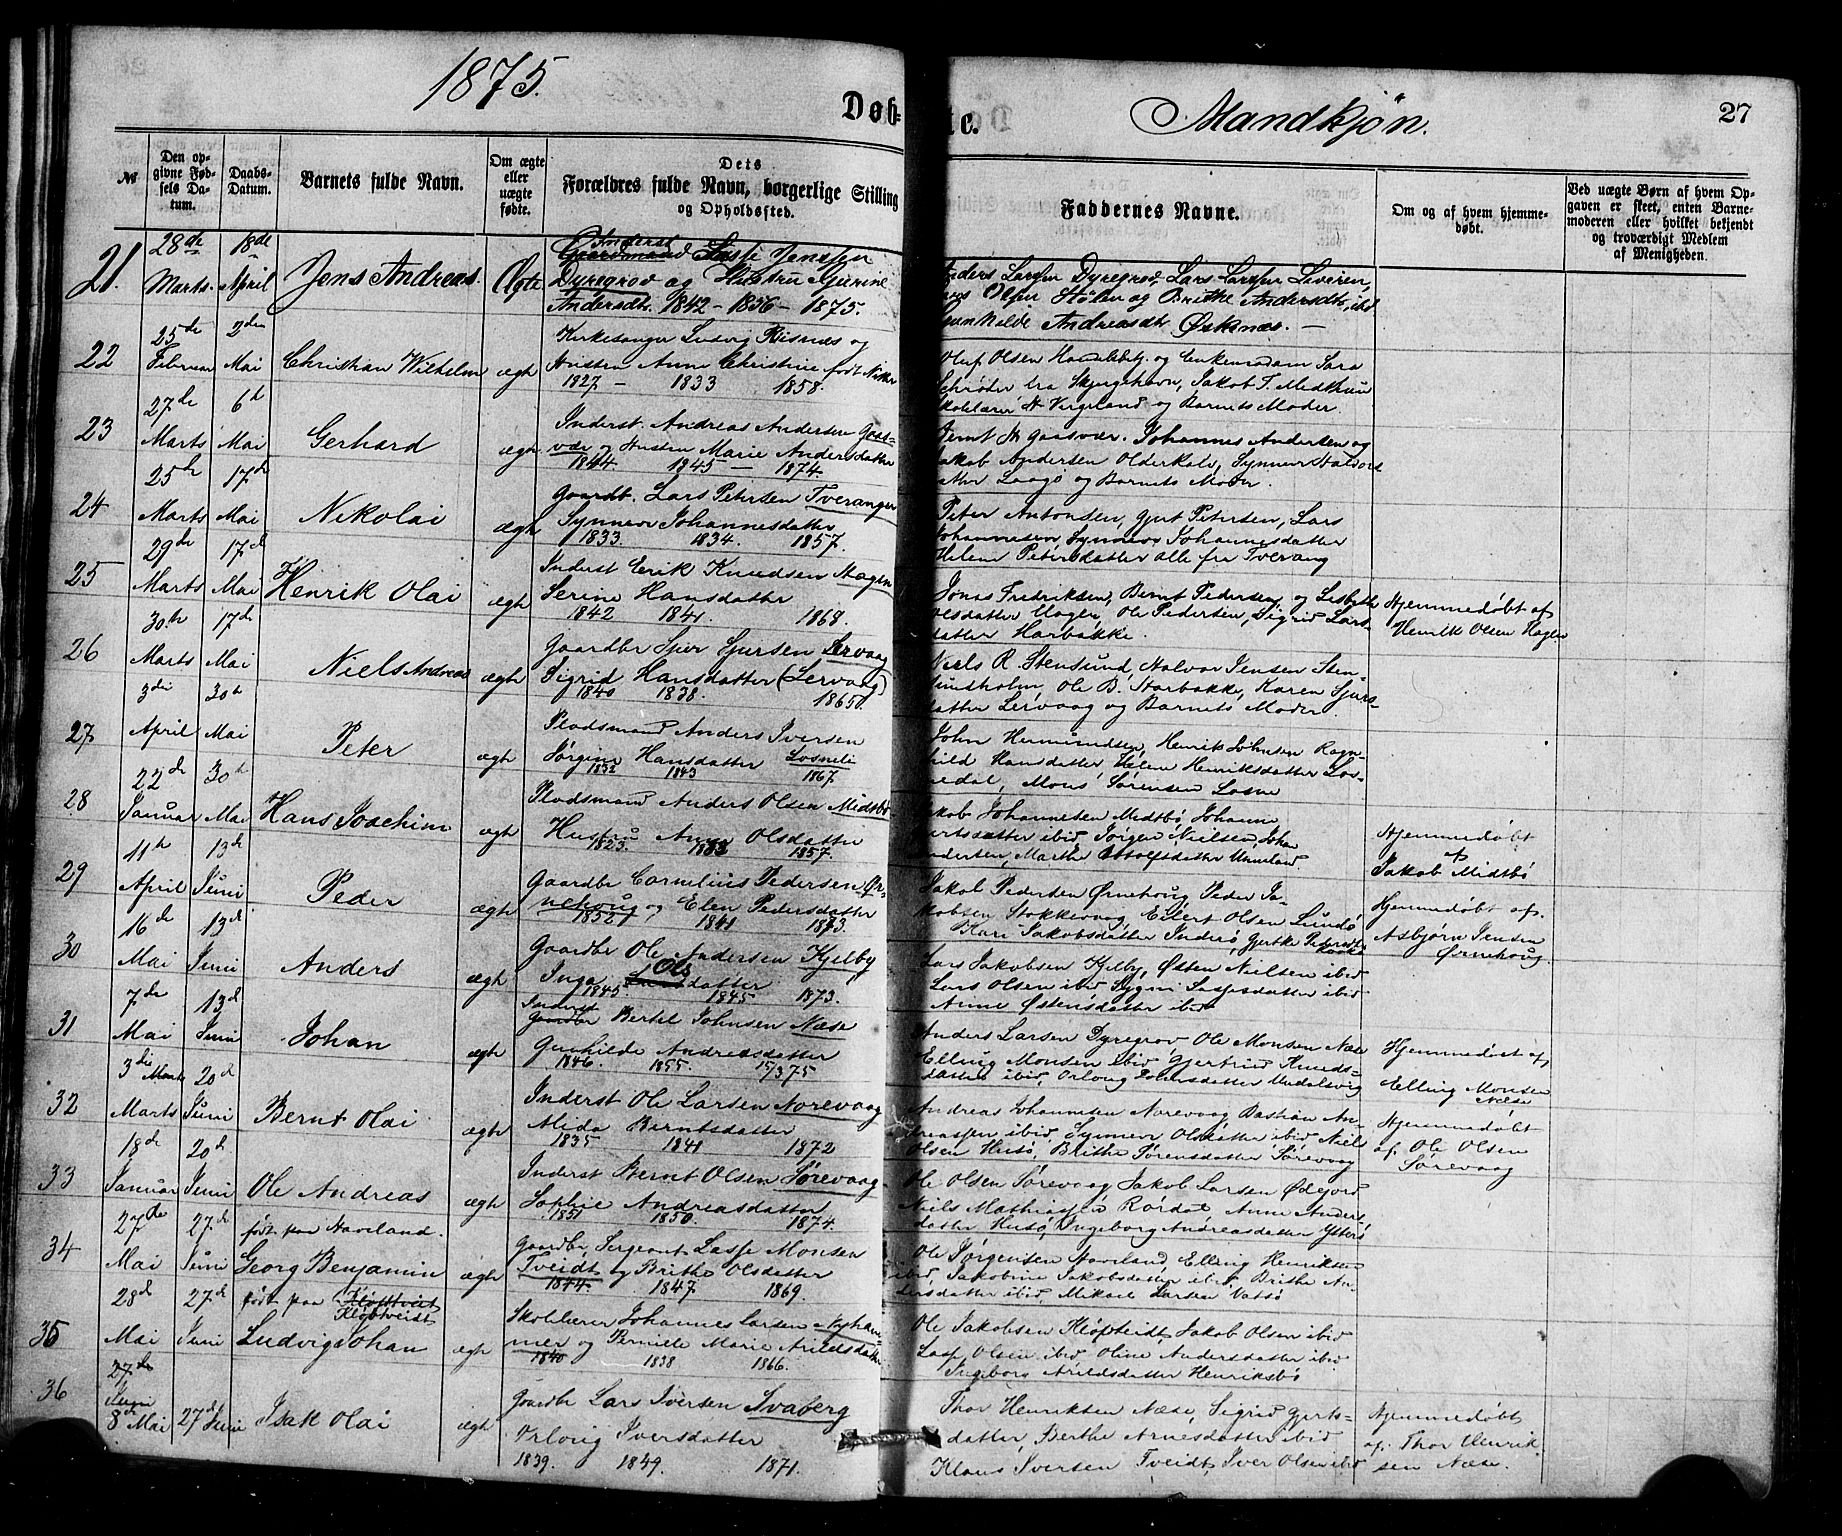 1875.
Døb-
te.
Mandkjøn.
27
№
Den op-
givne Fød-
sels Da-
tum.
Daabs-
Datum.
Barnets fulde Navn.
Om ægte
eller
uægte
fødte.
Dets
Forældres fulde Navn, borgerlige Stilling
og Opholdssted.
Faddernes Navne.
Om og af hvem hjemme-
døbt.
Ved uægte Børn af hvem Op-
gaven er skeet, enten Barne-
moderen eller hvilket bekjendt
og troværdigt Medlem
af Menigheden.
21.
28de
Marts.
18de
April
Jens Andreas.
Ægte
Inderst
Gaardmand Lasse Jenssen
Dyregrov og Hustru Gjurine
Andersdt. 1842 - 1856 - 1875.
Anders Larssen Dyregrov, Lars Larssen Leveren,
Olsen Hølen og Brithe Andersdt. ibd
Gunhilde Andreasdt Øsknes. —
22
25de
Februar
2den
Mai
Christian Wilhelm
ægte
Kirkesanger Ludvig Risnes og
Hustru Anne Christine født
1827 - 1833 1858.
Oluf Olsen Handelsbetj. og Enkemadam Sara
Schrøder fra Skjergehavn, Jakob T. Midthun
Skolelærer Vergeland og Barnets Moder.
23
27de
Marts
6te
Mai
Gerhard
ægte
Inderst. Andreas Andersen Gaas-
vær og Hustru Marie Andersdatter
1844 1845 — 1874.
Bernt M Gaasvær. Johannes Andersen og
Jakob Andersen Olderkalv, Synneve Halvors
datter Laagø og Barnets Moder.
24
25de
Marts
17de
Mai
Nikolai
ægte
Gaardb. Lars Petersen Tveranger
Synneve Johannesdatter
1833. 1834. 1857.
Peter Antonsen, Gjert Petersen, Lars
Johannessen Synneve Johannesdatter
Helene Petersdatter alle fra Tverang
25
29de
Marts
17de
Mai
Henrik Olai
ægte
Inderst Erik Knudsen Hagen
Serine Hansdatter
1842 1841 1868.
Jonas Fredriksen, Bernt Pedersen og Lisbeth
Olsdatter Hagen, Ole Pedersen, Sigrid Lars-
datter Harbakke.
Hjemmedøbt af
Henrik Olsen Hagen
26
30te
Marts
17de
Mai
Niels Andreas
ægte
Gaardbr Sjur Sjursen Lervaag
Sigrid Hansdatter (Lervaag)
1840 1838. 1865.
Niels R. Stensund, Halvor Jensen Sten-
sundholm, Ole B. Harbakke, Karen Sjurs-
datter Lervaag og Barnets Moder.
27
3die
April
30te
Mai
Peter
ægte
Pladsmand Anders Iversen
Sørgine Hansdatter Losneli
1832 1843 1867.
John Hermundsen, Henrik Johnsen Ragn-
hild Hansdatter Helene Henriksdatter Los-
nedal, Mons Sørensen Losne
28
22de
Januar
30te
Mai
Hans Joachim
ægte
Pladsmand Anders Olsen Midtbø
Hustru Anne Olsdatter
1823. 1857.
Jakob Johannessen Midtbø, Johanne
Gjertsdatter ibid, Jørgen Nielsen, Johan
Andersen, Marthe
Hjemmedøbt
af
Jakob Midtbø
29
11te
April
13de
Juni
Peder
ægte
Gaardbr Cornelius Pedersen Ør-
nehoug og Elen Pedersdatter
1852 1841 1873.
Jakob Pedersen Ørnehoug Peder Ja-
kobsen Stokkevaag, Eilert Olsen Lundø
Kari Jakobsdatter Inderø, Gjertke Pedersdt
Hjemmedøbt af.
Asbjørn Jensen
Ørnehoug.
30
16de
Mai
13de
Juni
Anders
ægte
Gaardbr Ole Andersen Kjelby
Inga Olsdatter
1845. 1845 1873.
Lars Jakobsen Kjelby, Østen Nielsen ibid
Lars Olsen ibid Lassesdatter ibid
Anne Østensdatter ibid
31
7de
Mai
13de
Juni
Johan
ægte
Inderst
Gaardbr Bertel Johnsen Næse
Gunhilde Andreasdatter
1846. 1855. 15/3 75
Anders Larsen Dyregrov Ole Monsen Næse
Elling Monsen ibid, Gjertrud Knuds-
datter ibid, Orloug Johnsdatter Undalsvig
Hjemmedøbt af
Elling Monsen
Næse
32
3die
Marts
20de
Juni
Bernt Olai
ægte
Inderst Ole Larsen Norevaag
Alida Berntsdatter
1835 1841 1872
Andreas Johannesen Norevaag Bastian An-
dreassen ibid Synneve Olsdatter ibid Niels
Olsen Husø, Brithe Sørensdatter Sørevaag
Hjemmedøbt
af Ole Olsen
Sørevaag
33
18de
Januar
20de
Juni
Ole Andreas
ægte
Inderst Bernt Olsen Sørevaag
Sophie Andreasdatter
1851 1850. 1874.
Ole Olsen Sørevaag Jakob Larsen Ødejord
Niels Mathiassen Rørdal Anne Anders
datter Husø, Ingeborg Andreasdatter Ytterø
34
27de
Mai
27de
Juni
født paa Haveland.
Georg Benjamin
ægte
Gaardbr, Sergeant Lasse Monsen
Tveidt og Brithe Olsdatter
1844. 1847 1869.
Ole Jørgensen Haveland, Elling Henriksen
ibid, Jakobine Jakobsdatter ibid, Brithe An-
dersdatter ibid, Mikael Larsen Vatsø
35
28de
Mai
27de
Juni
født paa
Kløvtveidt
Ludvig Johan
ægte
Skolelærer Johannes Larsen Nyham-
mer og Pernille Marie Arildsdatter
1840 1838 1866.
Ole Jakobsen Kløftveidt, Jakob Olsen ibid
Lasse Olsen ibid Oline Andersdatter ibid
Ingeborg Arildsdatter Henriksbø
36
27de
Juni
8de Mai
27de Juni
Isak Olai
ægte
Gaardbr Lars Iversen Svaberg
Orloug Iversdatter
1839. 1849. 1871.
Thor Henriksen Næse, Sigrid Gjerts-
datter, Berthe Arnesdatter ibid
Klaus Iversen Tveidt, Iver Olsen ibid
Hjemmedøbt
af Thor Henrik
sen Næse.